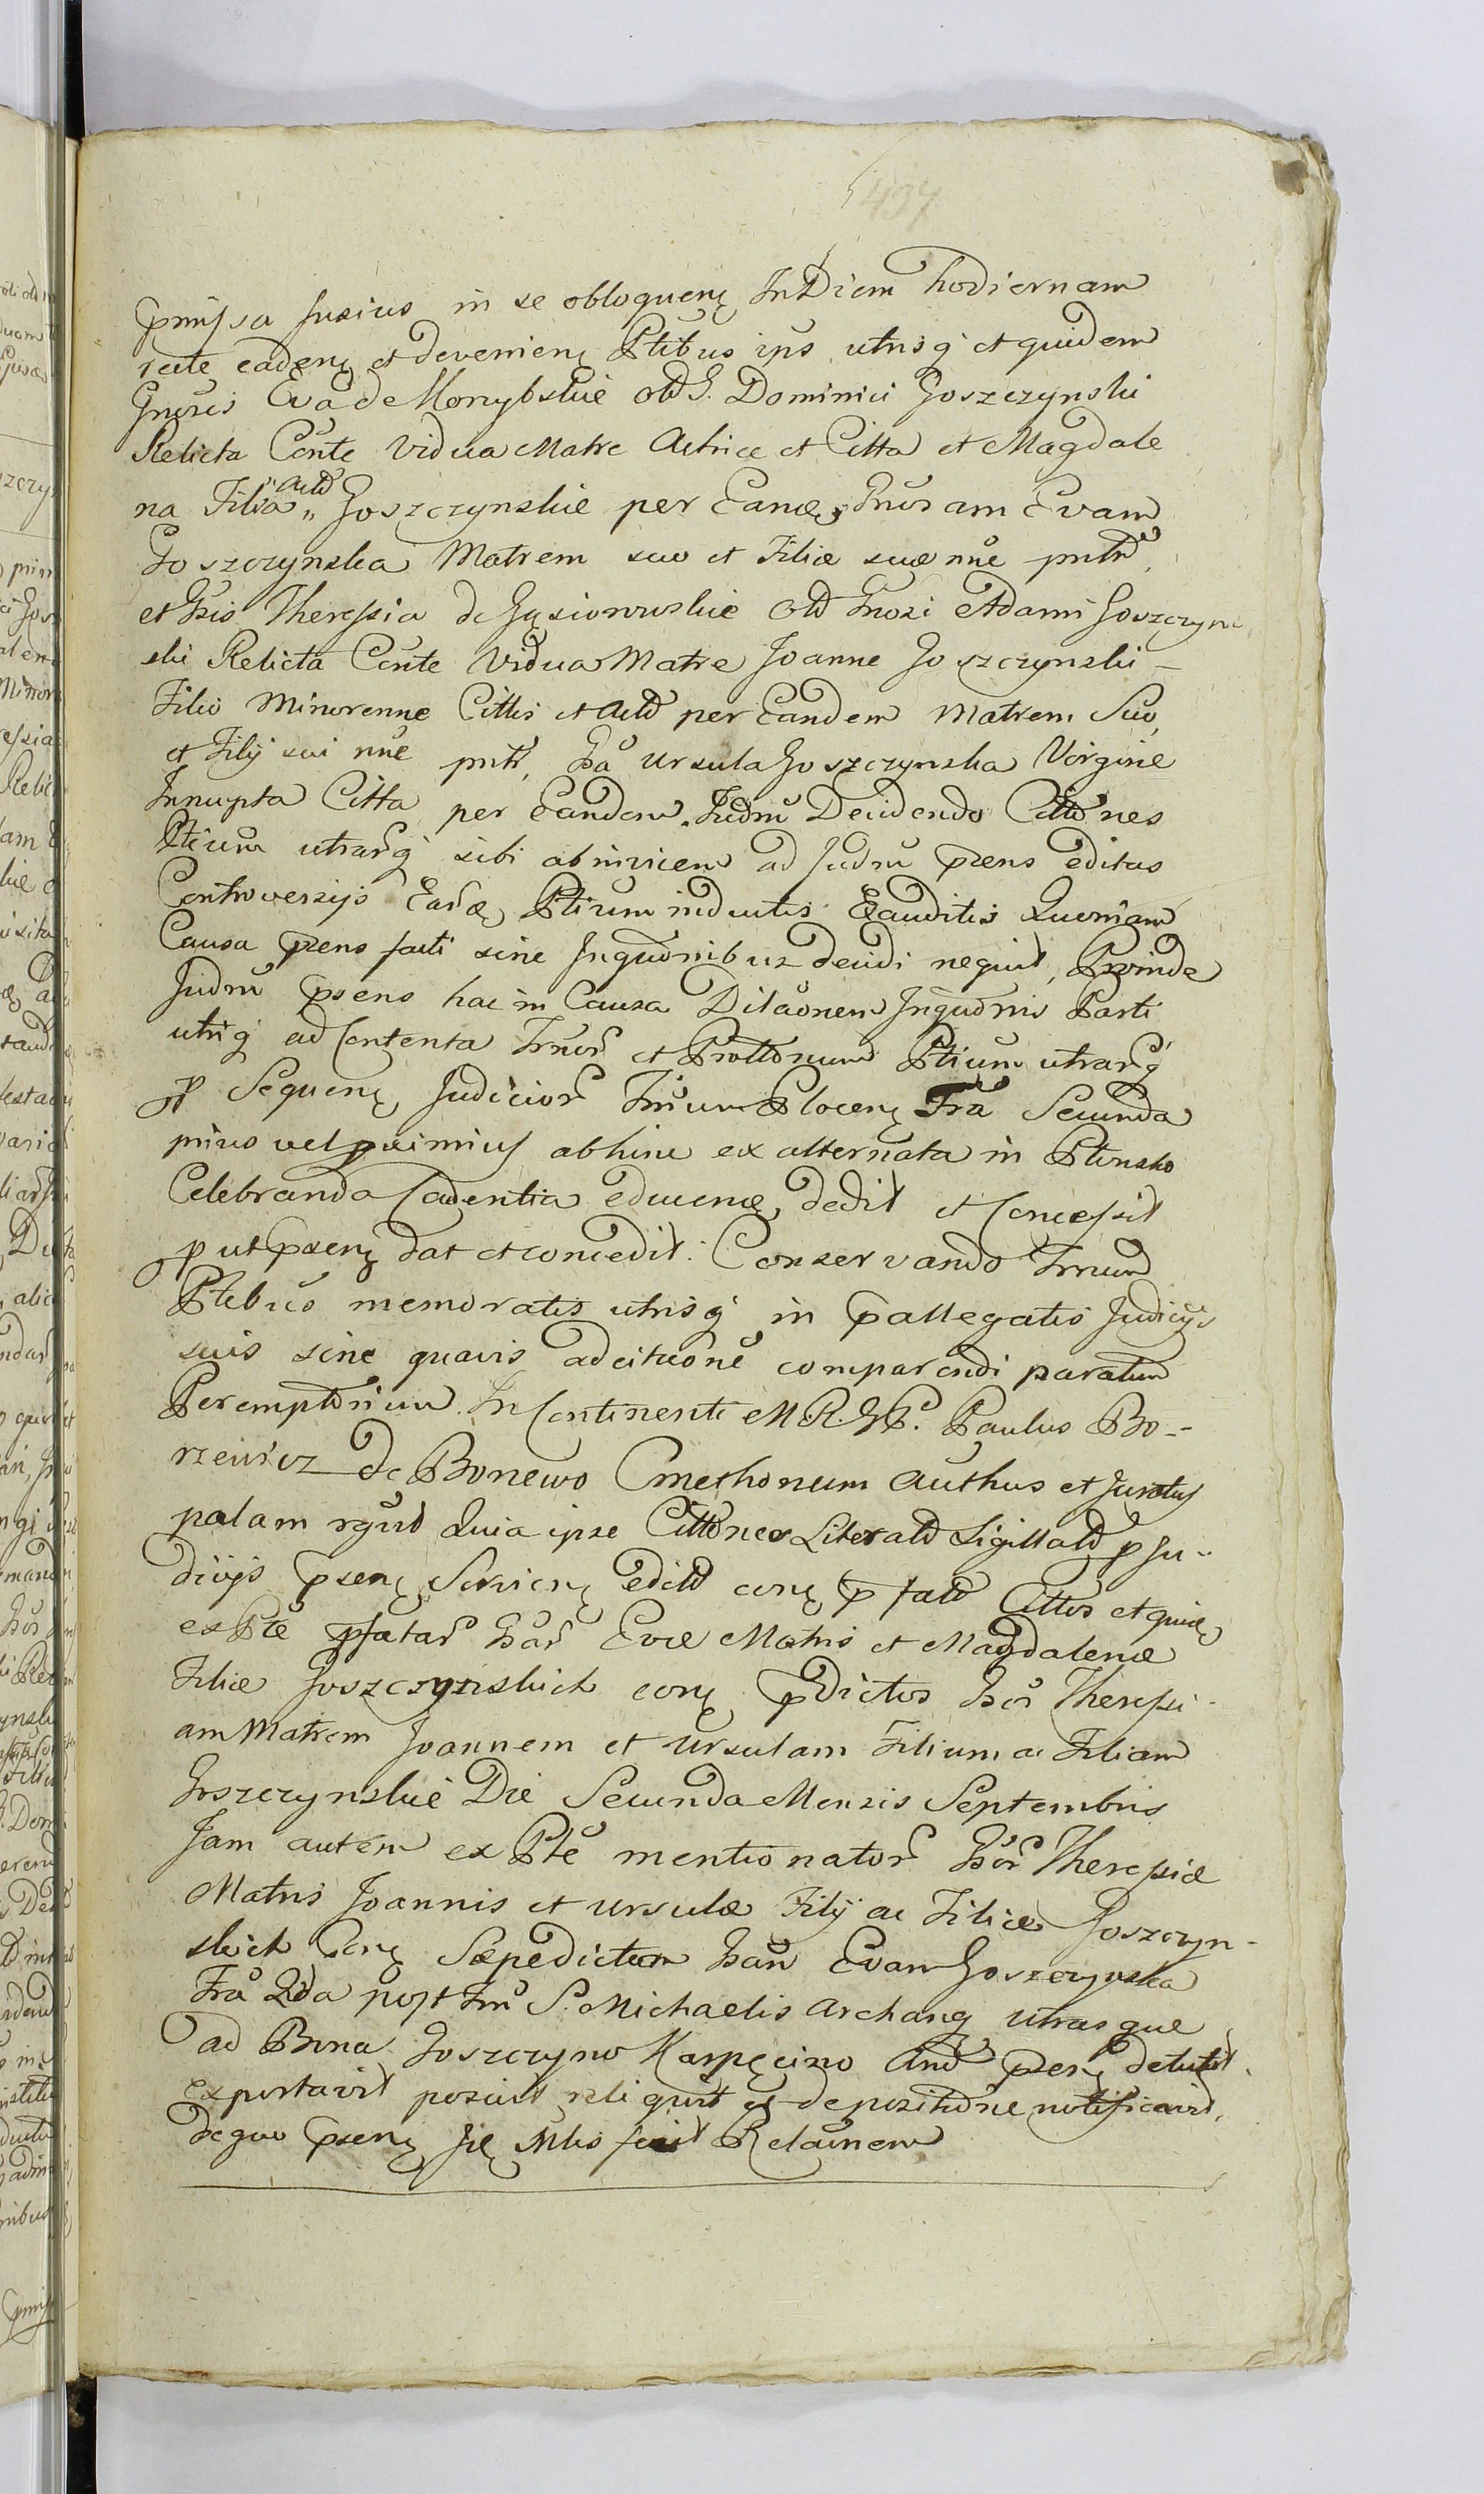 437
pmissa fusius in se obloquenꝫ In Diem hodiernam
rite cadenꝫ et devenienꝫ Ptibus ips utrisq et quidem
Gnosis Eva de Monybskie olt G. Dominici Goszczynski
Relicta Conte Vidua Matre Actrice et Citta et Magdale
na Filia „ Actt Goszczynskie per Eande, Gnosam Evam
Goszczynska Matrem suo et Filiæ suæ nne pntte,
et Gsis Theressia de Gąsiorowskie Olt Gnosi Adami Goszczyn
ski Relicta Conte Vidua Matre Joanne Goszczynski –
Filio Minorenne Cittis et Actt per Eandem Matrem Suo,
et Filij sui nne pntt, Gsa Ursula Goszczynska Virgine
Innupta Citta per Eandem. Judm Decidendo Citto nes
Ptium utrarq sibi ab invicem ad Judm prens editas
Controversijs Earꝫ Ptium inductis Exauditis Quoniam
Causa prens facti sine Inquonibus decidi nequit, Proinde
Judm psens hac in Causa Dilaonem Inquonis Parti
utriq ad Contenta Trnor et Prottonum Ptium utrarq
p Sequenꝫ Judicior Trrium Plocenꝫ Fra Secunda
prius vel proximius abhinc ex alternata in Plonsko
Celebranda Cadentia educenꝫ, dedit et Concessit
p ut prenꝫ dat et concedit. Conservando Trnum
Ptibus memoratis utrisq in pallegatis Judicijs
suis sine quavis adcitaone comparendi paratum
Peremptorium. In Continenti M. R. G. P. Paulus Bo-
rzewicz de Bonewo Cmethonum Authus et Juratus
palam rgnt Quia ipse Cittones Literatt Sigillatt p Ju-
dicijs prenꝫ Servienꝫ editt conꝫ p fatt Cittos et quidꝫ
ex Pte pfatar Gsar Evæ Matris et Magdalenæ
Filiæ Goszczynskich conꝫ pDictos Gsos Theressi-
am Matrem Joannem et Ursulam Filium ac Filiam
Goszczynskie Die Secunda Mensis Septembris
Jam autem ex Pte mentionator Gsor Theressiæ
Matris Joannis et Ursulæ Filij ac Filiæ Goszczyn-
skich Conꝫ Sæpedictam Gsam Evam Goszczynska
Fra 2da post Fm S. Michaelis Archanꝫ utrasque
ad Bona Goszczyno Karpęcino And prenꝫ detulit
exportavit posuit reliquit et depositione notificavit,
de quo prenꝫ Jis Mlis fecit Relaonem